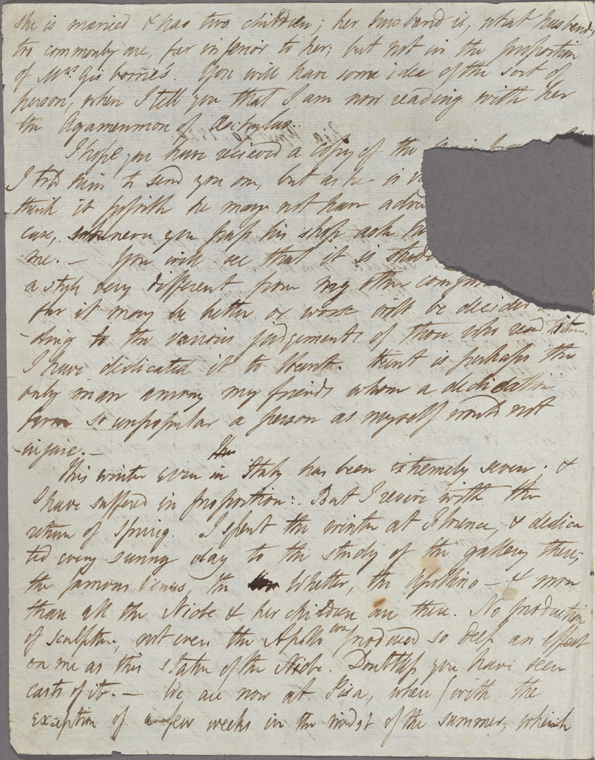 she is married & has two children; her husband is, what husbands
too commonly are, far inferior to her, but not in the proportion
of Mrs. Gisborne's. You will have some idea of the sort of
person, when I tell you that I am now reading with her
the Agamemnon of Æschylus.
I hope you have received a copy of the
I told him to send you one, but as he is
think it possible he may not have
case, whenever you pass his shop ask
me. — You will see that it is
a style very different from my other
far it may be better or worse will be decided
-ding to the various judgements of those who read it
I have dedicated it to Hunt. Hunt is perhaps the
only man among my friends whom a dedication
from so unpopular a person as myself would not
injure. —
This winter even in Italy has been extremely severe; &
I have suffered in proportion. But I revive with the
return of Spring. I spent the winter at Florence, & dedica
ted every sunny day to the study of the gallery there;
the famous Venus, the Whetter, the Apollino — & more
than all the Niobe & her children are there. No production
of sculpture, not even the Apollo ever produced so deep an effect
on me as this statue of the Niobe. Doubtless you have seen
casts of it. — We are now at Pisa, where (with the
exception of a few weeks in the midst of the summer, which